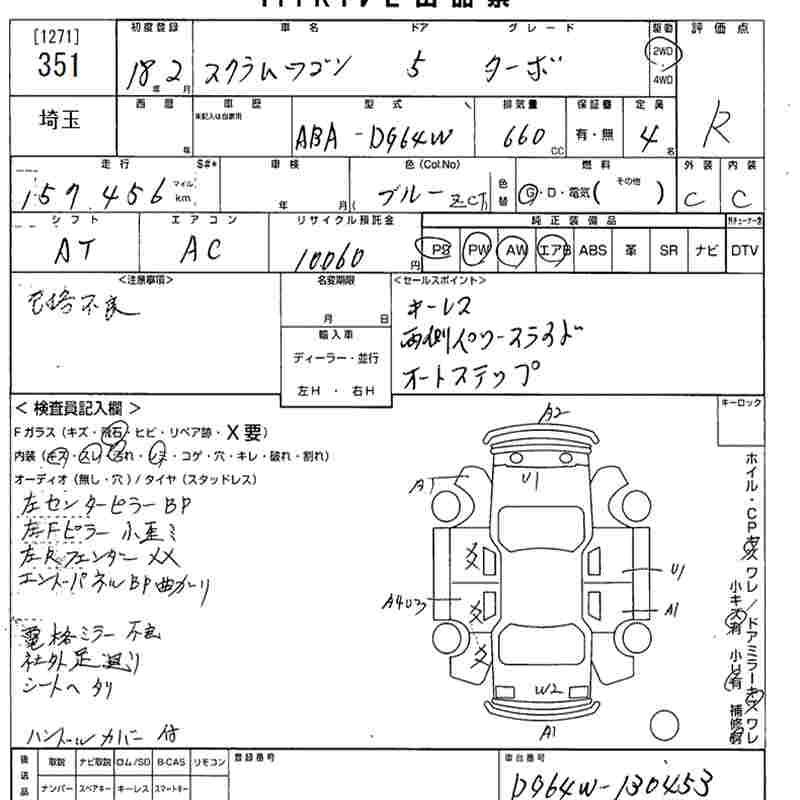 [1271]
351
初度登録 車名 ドア グレード 駆動 評価点
18年2月 スクラムワゴン 5 ターボ 2WD・4WD R
埼玉
西暦 車歴 型式 排気量 保証書 定員
年 未記入は自家用 ABA-DG64W 660cc 有・無 4名
走行 S#* 車検 色(Col.No) 燃料 外装 内装
157,456 マイル km 年 月 ブルー ZCT 色替 G・D・電気( その他 ) C C
シフト エアコン リサイクル預託金 純正装備品
AT AC 10060円 PS PW AW エアB ABS 革 SR ナビ DTV
<注意事項> 名変期限 <セールスポイント>
電格不良 月 日 キーレス
輸入車 両側パワースライド
ディーラー・並行 オートステップ
左H・右H
<検査員記入欄> キーロック
Fガラス(キズ・飛石・ヒビ・リペア跡・X要)
内装(キズ・スレ・汚れ・シミ・コゲ・穴・キレ・破れ・割れ)
オーディオ(無し・穴)/タイヤ(スタッドレス)
左センターピラーBP
左Fピラー小歪ミ
左Rフェンダー XX
エンドパネルBP曲がり
電格ミラー不良
社外足廻り
シートヘタリ
ハンドルカバー付
A2
U1
A1
U1
A4U3
A1
W2
A1
ホイル・CPキズワレ/ドアミラーキズワレ
小キズ有 小U有 補修跡
後送品 取説 ナビ取説 ロム/SD B-CAS リモコン 登録番号 車台番号
ナンバー スペアキー キーレス スマートキー DG64W-130453